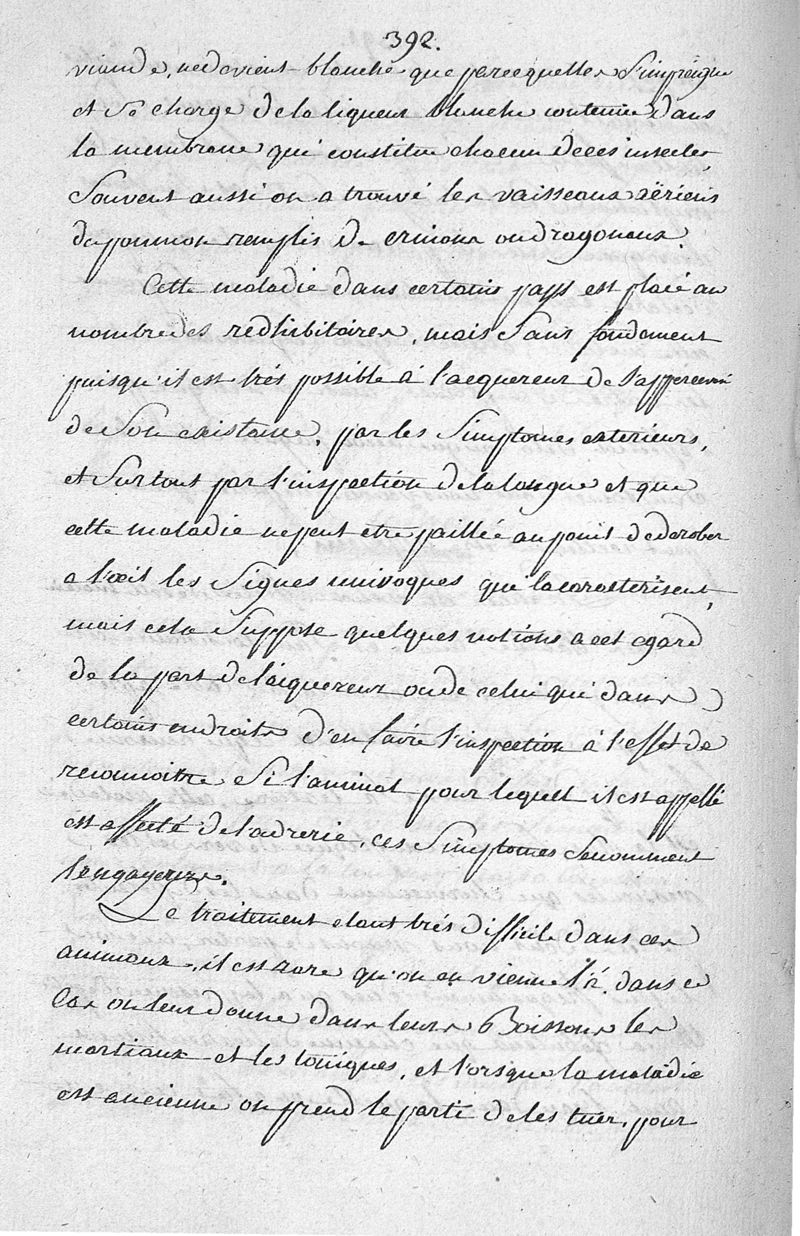 392.
viande, ne devient blanche que parcequelles S'impreigne
et Se charge de la liqueur blanche contenue dans
la membrane qui constitue chacun de ces insectes,
Souvent aussi on a trouvé les vaisseaux aëriens
du poumon remplis de crinons ou dragoneaux.
Cette maladie dans certains pays est placé au
nombre des redhibitoires, mais Sans fondement
puisqu'il est trés possible à l'acquereur de S'appercevoir
de Son existance, par les Simptomes exterieurs,
et Surtout par l'inspection de la langue et que
cette maladie ne peut etre palliée au point de derober
a l'œil les Signes univoques qui la caracterisent,
mais cela Suppose quelques notions a cet egard
de la part de l'aiquereur ou de celui qui dans
certains endroits d'en faire l'inspection à l'effet de
reconnoitre Si l'animal pour lequel il est appellé
est affecté de ladrerie, ces Simptomes Se nomment
langayeurs.
Le traitement etant trés difficile dans ces
animaux, il est rare qu'on en vienne là, dans ce
Cas on leur donne dans leurs Boissons les
martiaux et les toniques, et lorsque la maladie
est ancienne on prend le parti de les tuer, pour